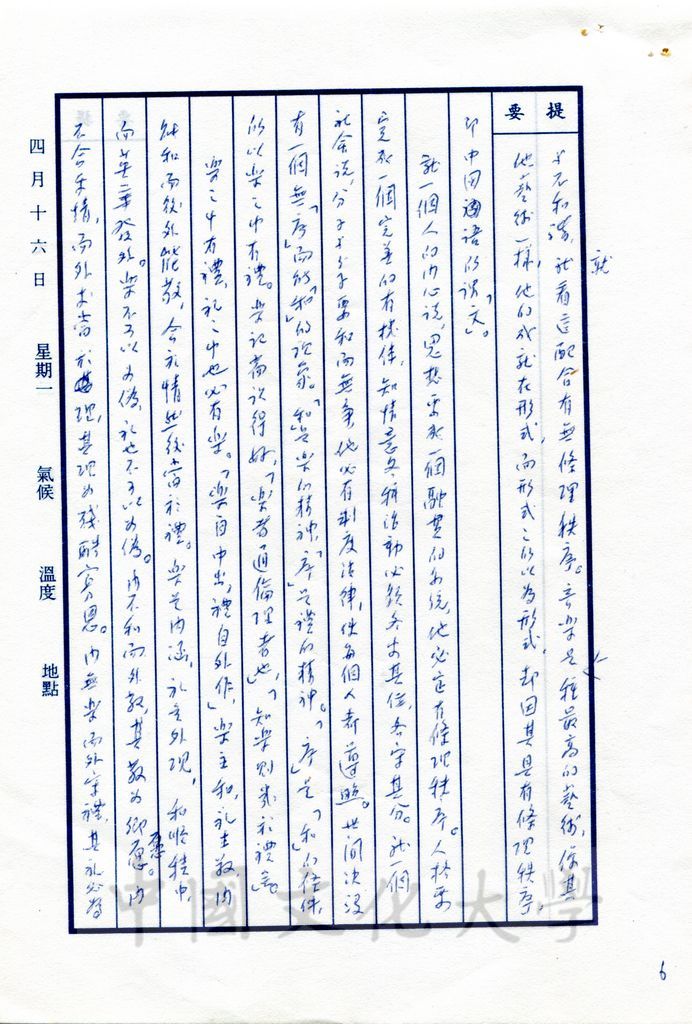 提要
與不和諧，就看這配合有無條理秩序。音樂是一種最高的藝術，像其
就
他藝術一樣，他的成就在形式，而形式之所以為形式，却因其具有條理秩序，
即中国通語的謂「文」。
就一個人的內心說，思想要成一個融貫的系統，他必定有條理秩序。人格要
完成一個完善的有機体，知情意各種活動必須各有其位，各守其分。就一個
社会說，分子與分子要和而無爭，他必有制度法律，使每個人都遵照。世間決沒
有一個無「序」而能「和」的現象。「和」是樂的精神，「序」是禮的精神。「序」是「和」的條件，
所以樂之中有禮。樂記高說得好，「樂者通倫理者也」，「知樂則幾於禮矣」
樂之中有禮，礼之中也必有樂。「樂自中出，禮自外作」，樂主和，礼主敬，內
能和而後外能敬，合於情然後當於禮。樂是內涵，礼是外現，和順積中，
而英華發外。樂不可以為偽，礼也不可以為偽。內不和而外敬，其敬為鄉愿。內
愿
不合乎情，而外求當於理，其理為殘酷寡恩。內無樂而外守禮，其礼必為
四月十六日 星期一 氣候 溫度 地點
中國文化大學
6